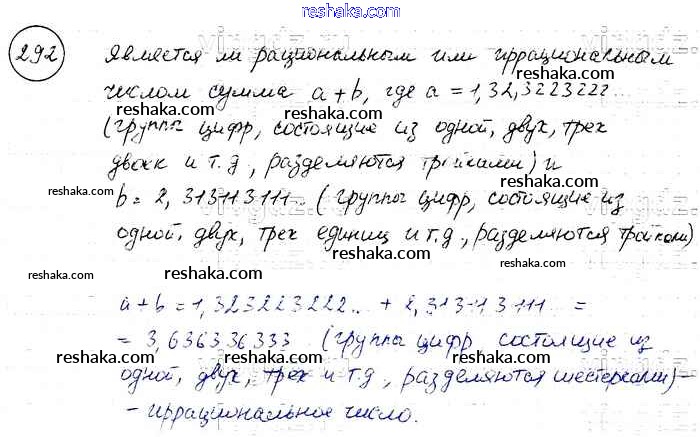 reshaka.com
292 Является ли рациональным или иррациональным
числом сумма a+b, где a = 1,32,3223222...
reshaka.com
reshaka.com
reshaka.com
(группы цифр, состоящие из одной, двух, трех
двоек и т.д, разделяются тройками) и
reshaka.com
reshaka.com
reshaka.com
b = 2,313113111... (группы цифр, состоящие из
reshaka.com
одной, двух, трех единиц и т.д, разделяются тройками)
reshaka.com
reshaka.com
reshaka.com
a+b = 1,323223222... + 2,313113111... =
reshaka.com
reshaka.com
= 3,636336333 (группы цифр состоящие из
reshaka.com
reshaka.com
reshaka.com
одной, двух, трех и т.д, разделяются шестерками) -
- иррациональное число.
reshaka.com